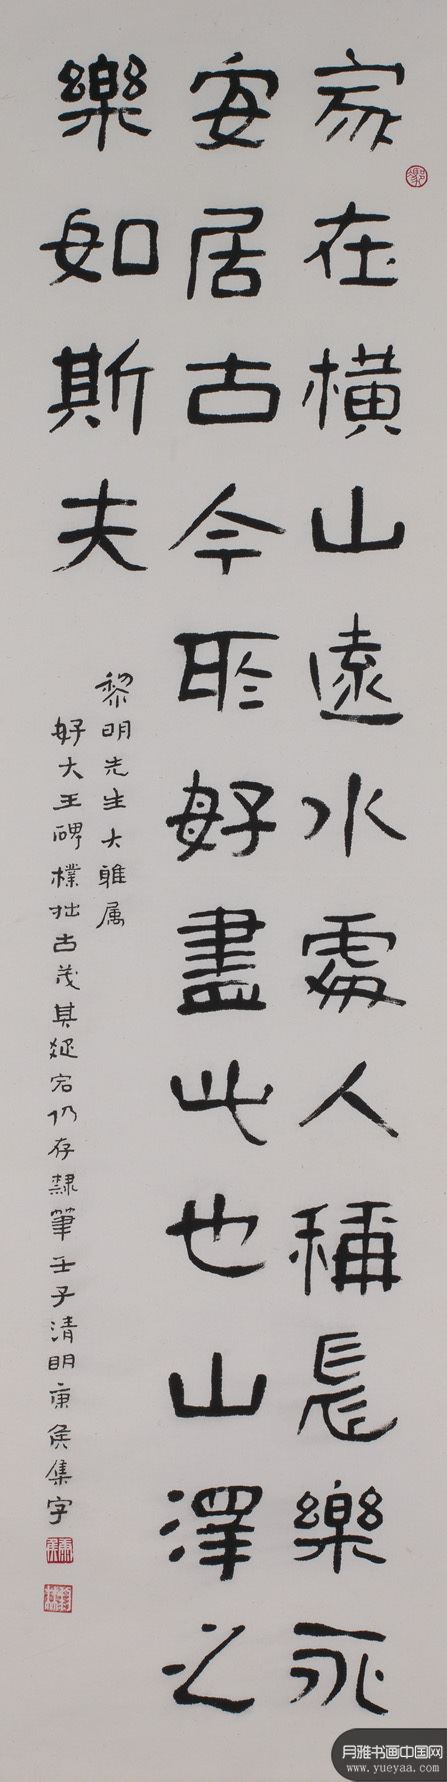 家在橫山遠水處人稱長樂永
安居古今所好盡此也山澤之
樂如斯夫
黎明先生大雅属
好大王碑樸拙古茂其延宕仍存隸筆壬子清明康矦集字
月雅书画中国网
www.yueyaa.com